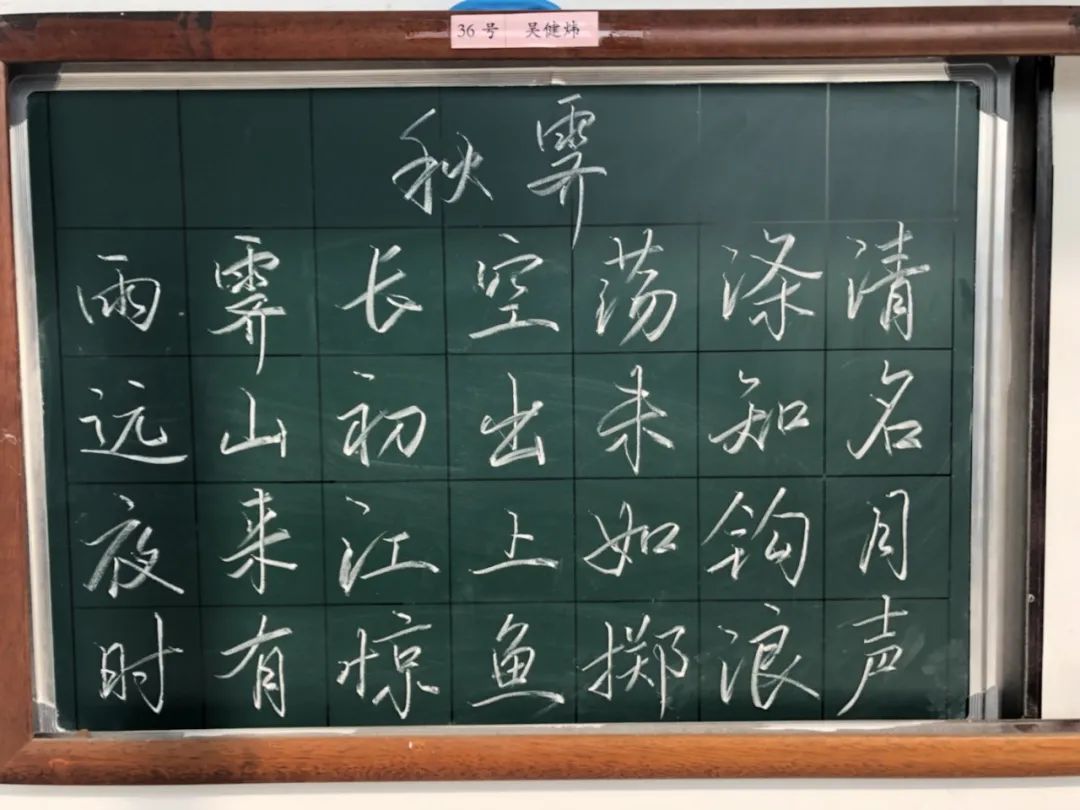 36号 吴健炜
秋霁
雨霁长空荡涤清
远山初出未知名
夜来江上如钩月
时有惊鱼掷浪声